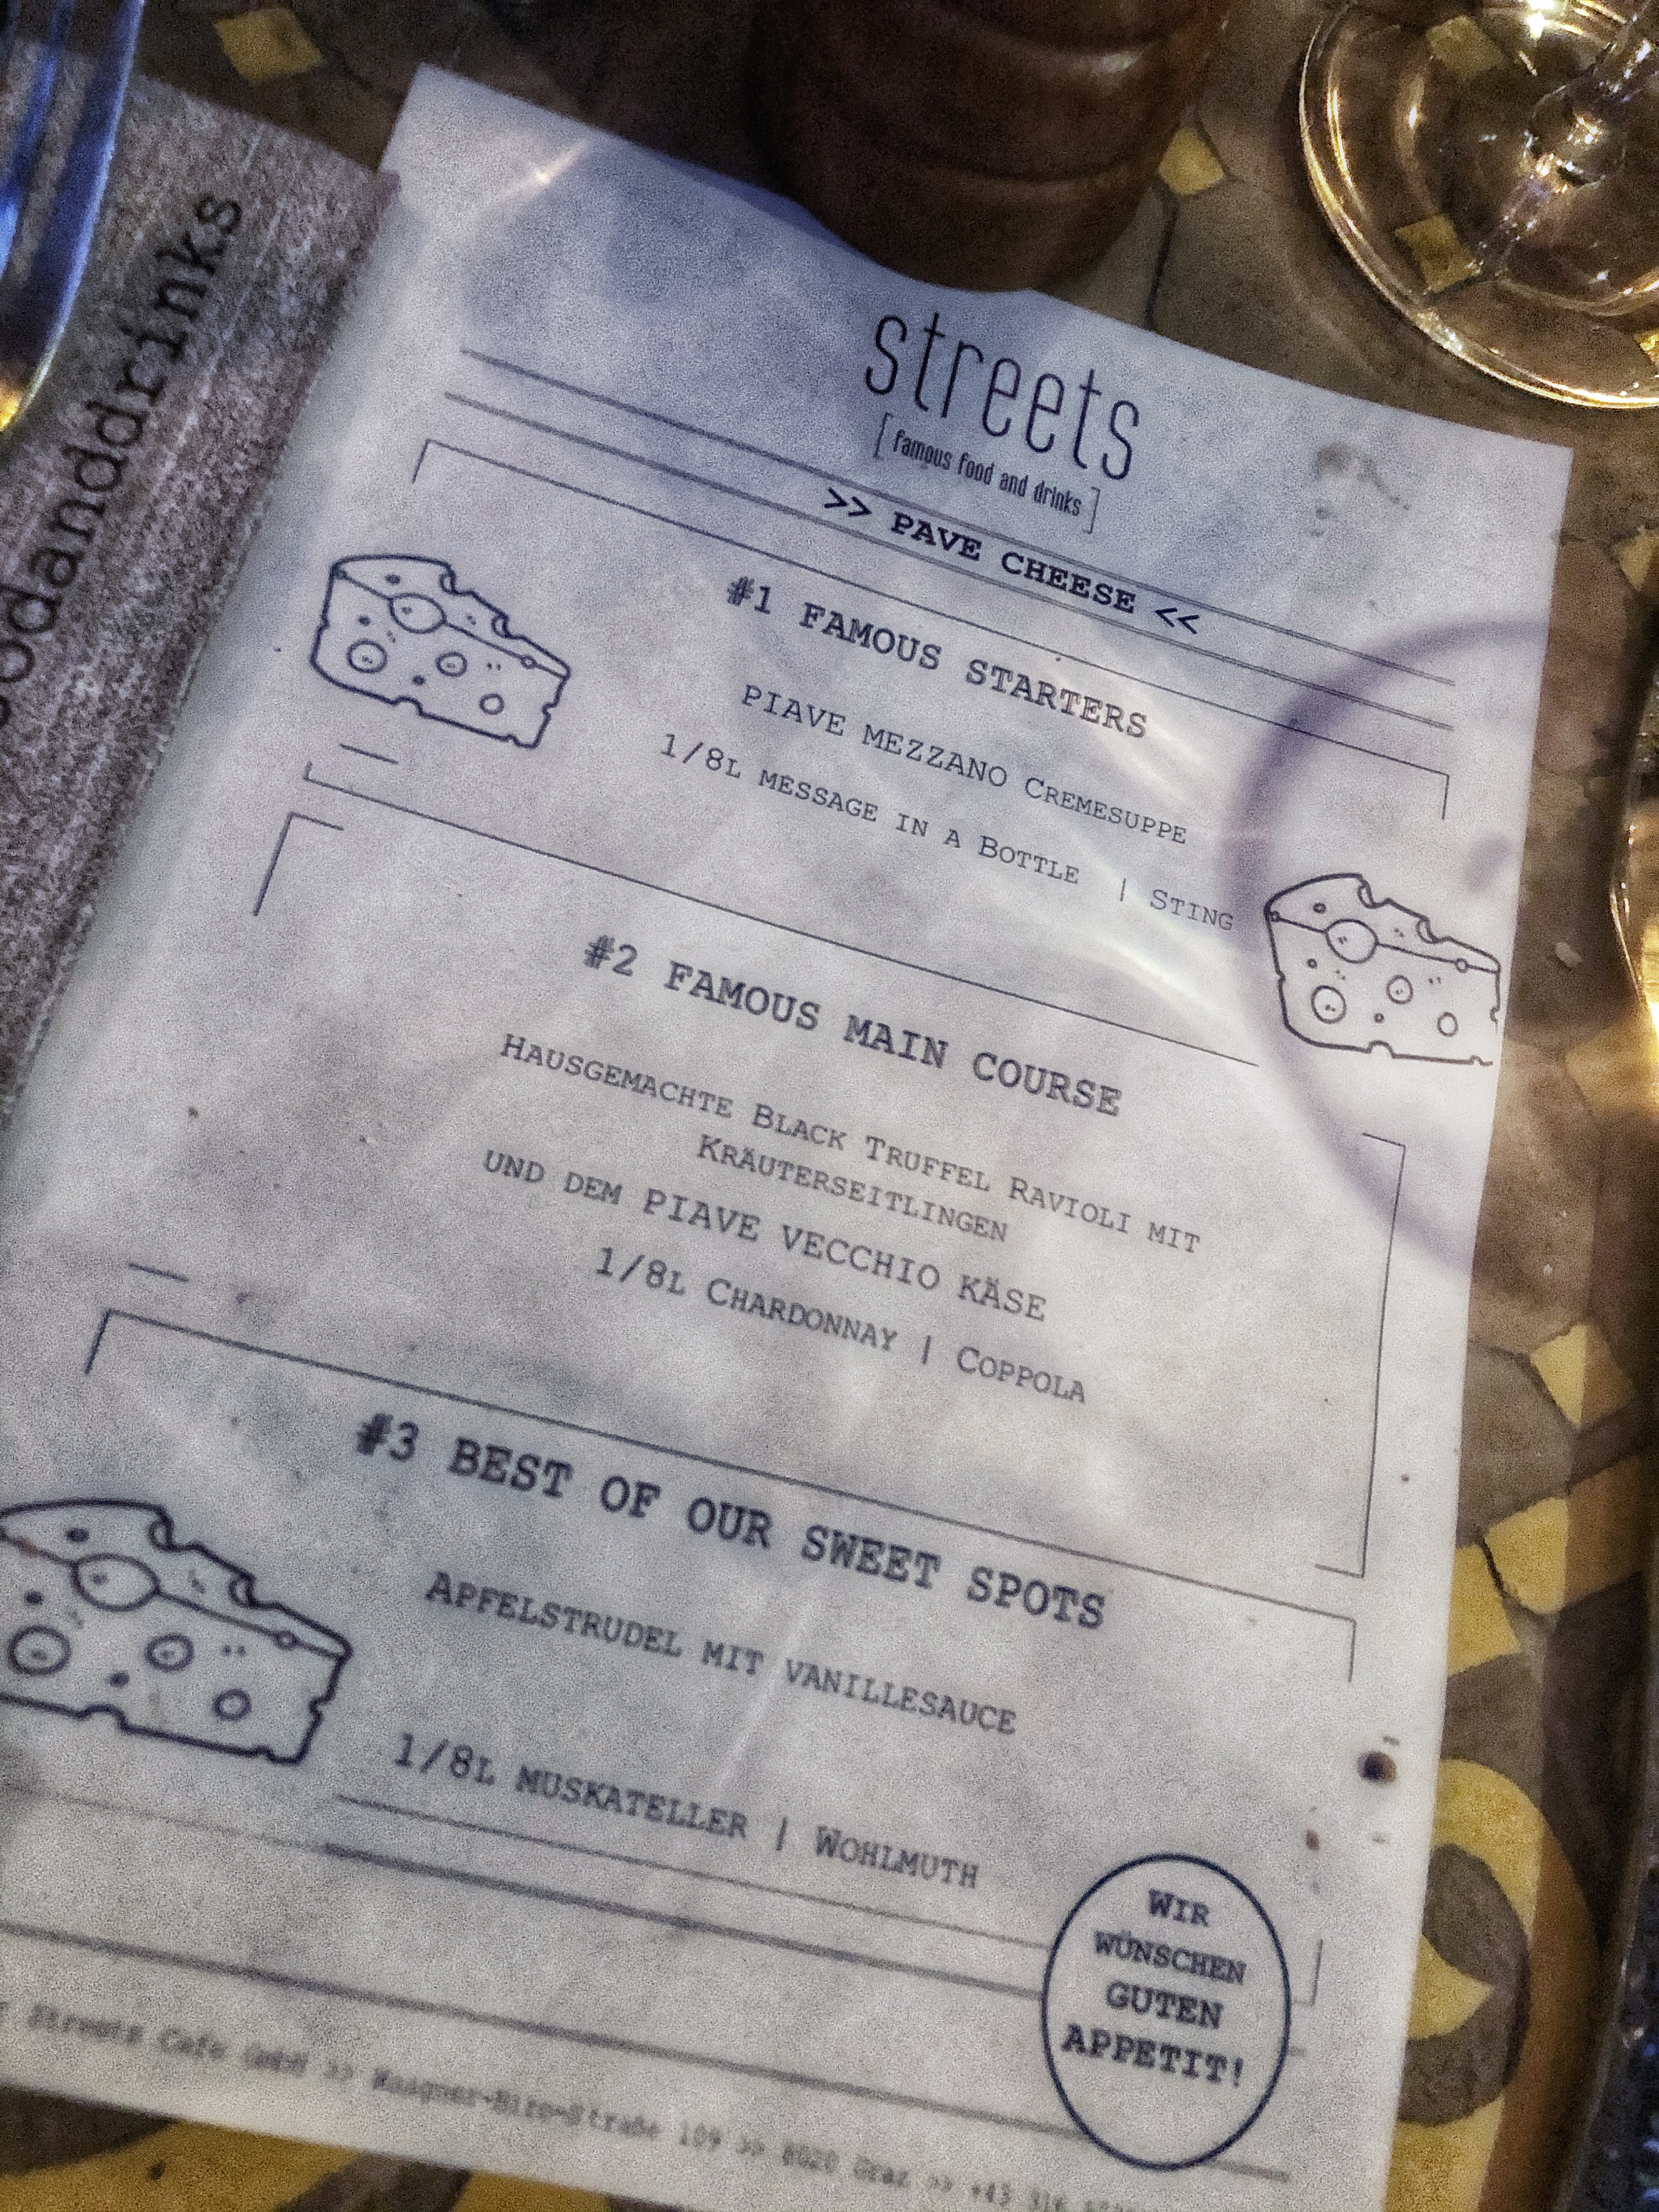 oodanddrinks
streets
[famous food and drinks]
>> PAVE CHEESE <<
#1 FAMOUS STARTERS
PIAVE MEZZANO CREMESUPPE
1/8L MESSAGE IN A BOTTLE | STING
#2 FAMOUS MAIN COURSE
HAUSGEMACHTE BLACK TRUFFEL RAVIOLI MIT
KRÄUTERSEITLINGEN
UND DEM PIAVE VECCHIO KÄSE
1/8L CHARDONNAY | COPPOLA
#3 BEST OF OUR SWEET SPOTS
APFELSTRUDEL MIT VANILLESAUCE
1/8L MUSKATELLER | WOHLMUTH
WIR
WÜNSCHEN
GUTEN
APPETIT!
Streets Cafe GmbH >> Waagner-Biro-Straße 109 >> 8020 Graz >> +43 316